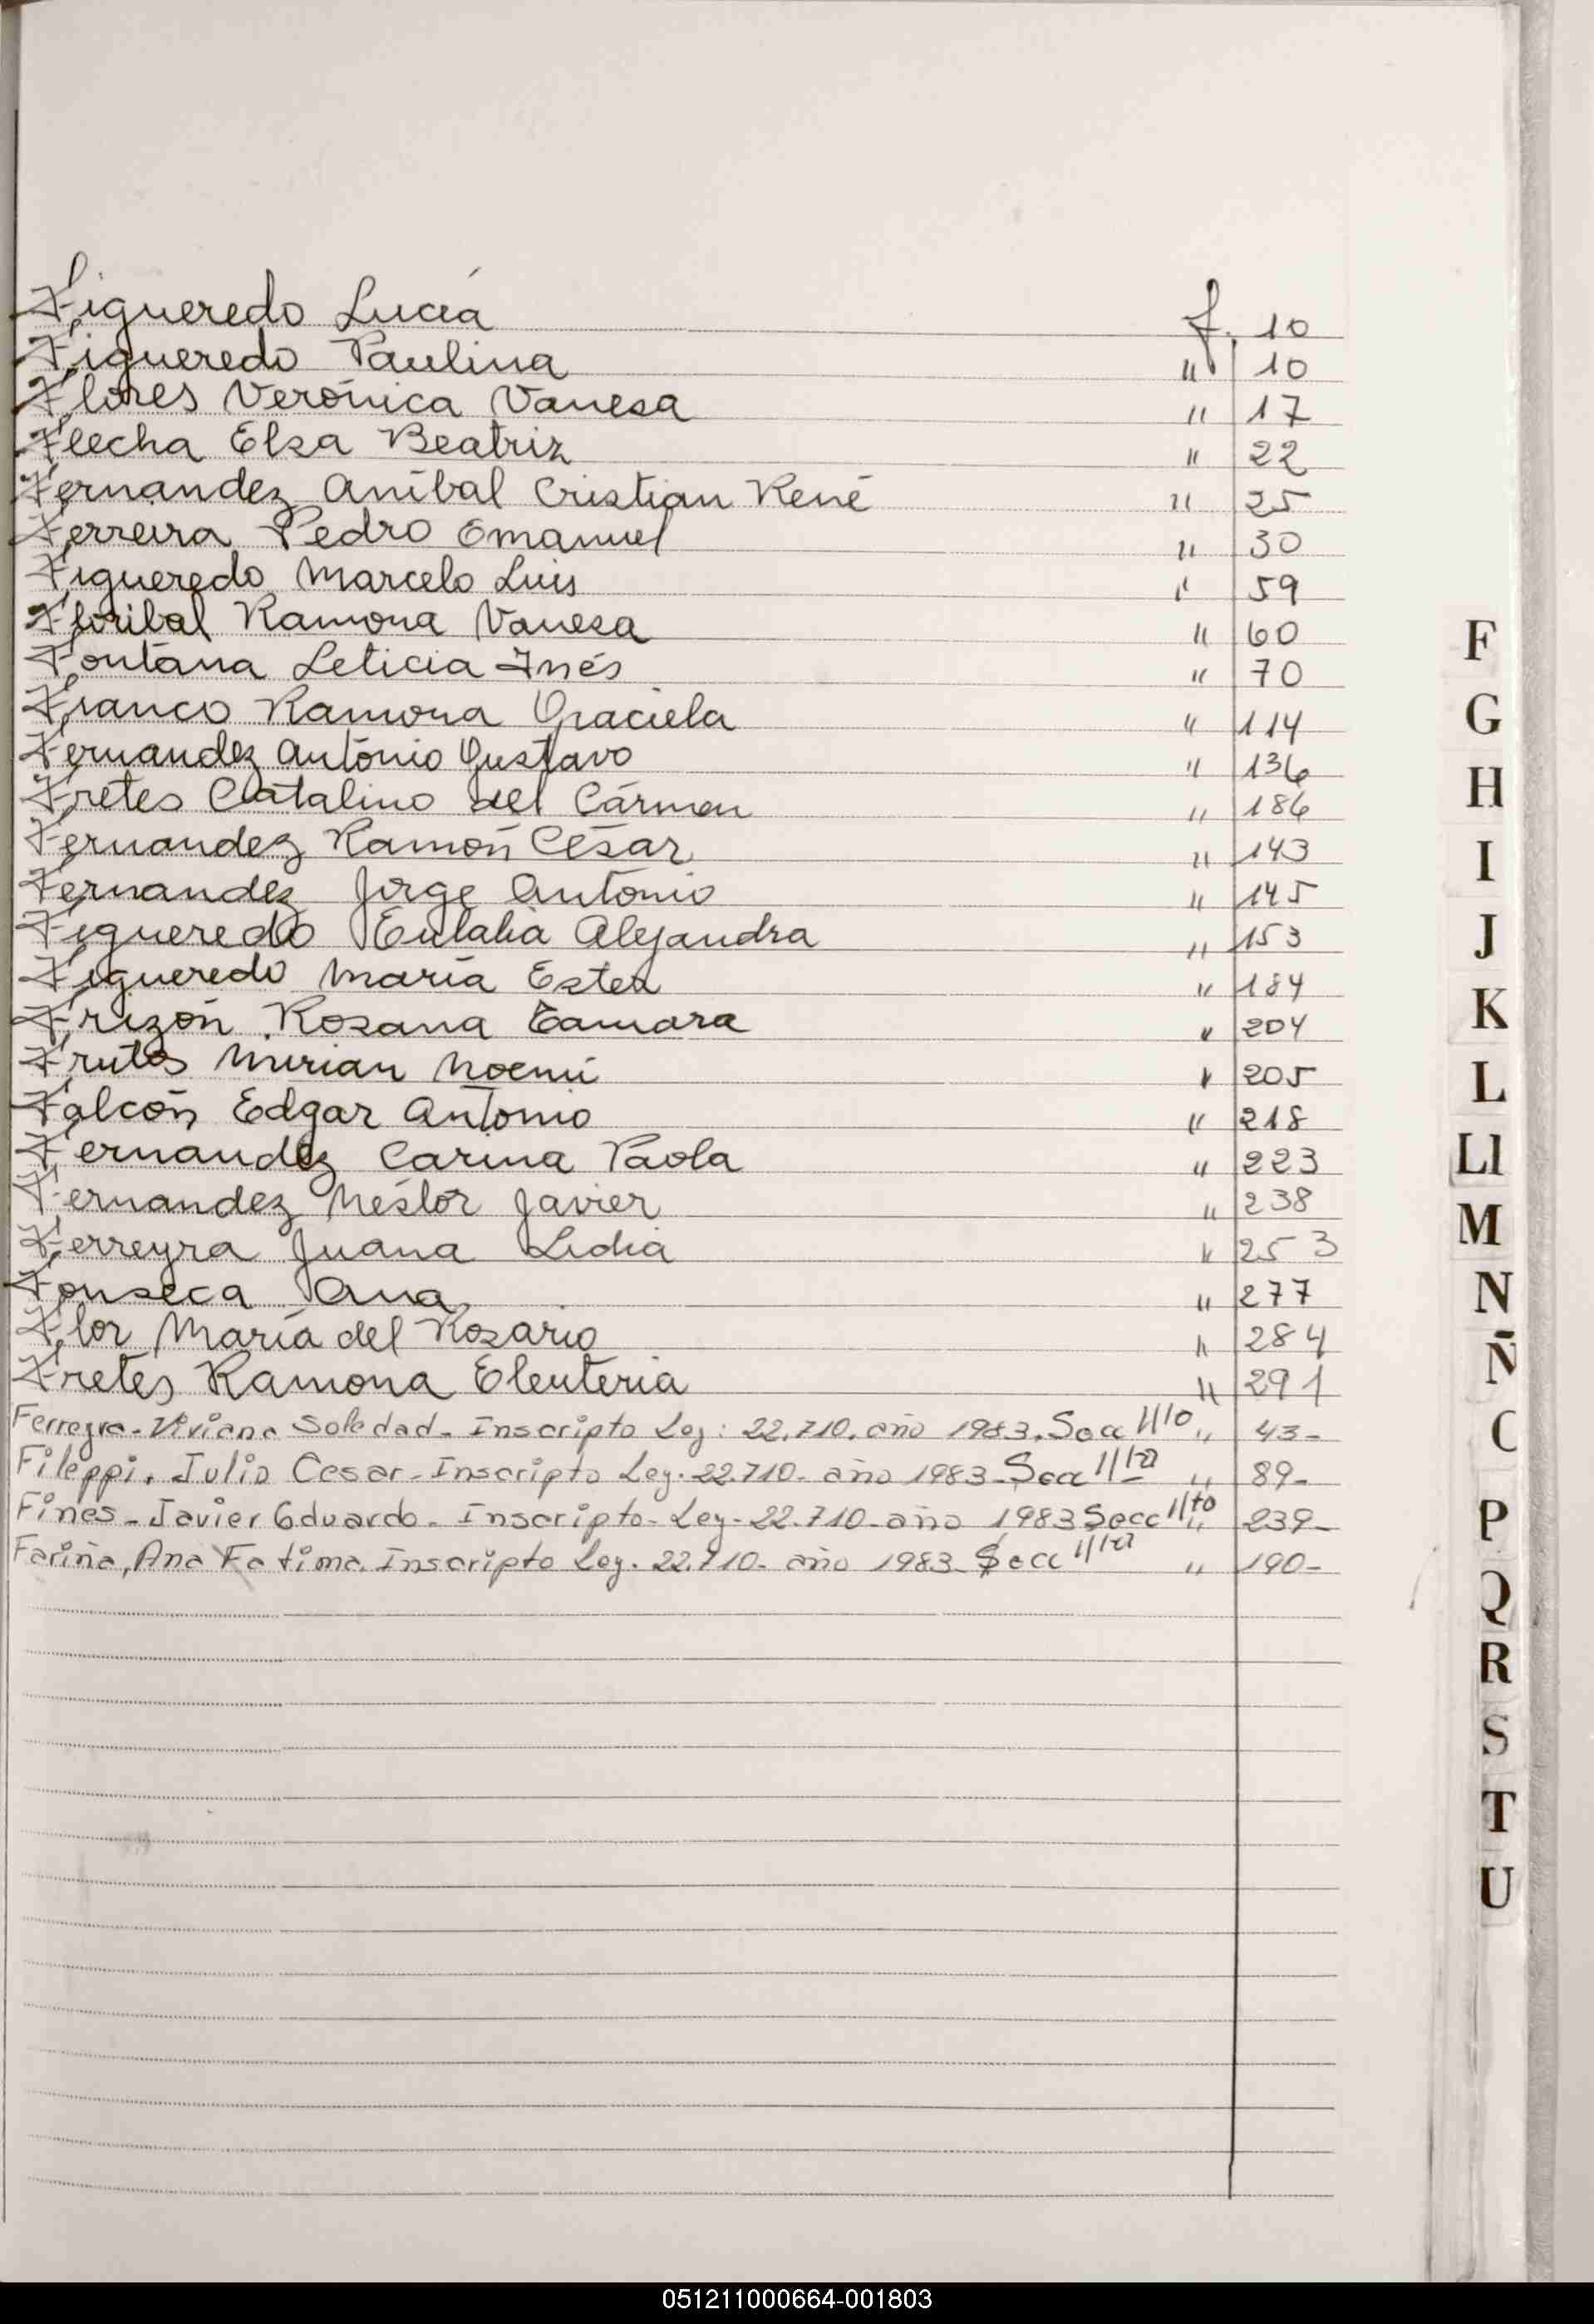 Figueredo Lucía f. 10
Figueredo Paulina " 10
Flores Verónica Vanesa " 17
Flecha Elsa Beatriz " 22
Fernandez Aníbal Cristian René " 25
Ferreira Pedro Emanuel " 30
Figueredo Marcelo Luis " 59
Floribal Ramona Vanesa " 60
Fontana Leticia Inés " 70
Franco Ramona Graciela " 114
Fernandez Antonio Gustavo " 136
Fretes Catalino del Cármen " 186
Fernandez Ramón César " 143
Fernandez Jorge Antonio " 145
Figueredo Eulalia Alejandra " 153
Figueredo María Ester " 184
Frizón Rosana Tamara " 204
Frutos Mirian Noemí " 205
Falcón Edgar Antonio " 218
Fernandez Carina Paola " 223
Fernandez Néstor Javier " 238
Ferreyra Juana Lidia " 253
Fonseca Ana " 277
Flor María del Rosario " 284
Fretes Ramona Eleuteria " 291
Ferreyra - Viviana Soledad - Inscripto Ley: 22.710. año 1983. Secc " 43-
Fileppi, Julio Cesar - Inscripto Ley. 22.710 - año 1983 - Secc " 89-
Fines - Javier Eduardo - Inscripto - Ley - 22.710 - año 1983 Secc " 239-
Fariña, Ana Fatima. Inscripto Ley. 22.710 - año 1983 - Secc " 190-
F
G
H
I
J
K
L
Ll
M
N
Ñ
P
Q
R
S
T
U
051211000664-001803